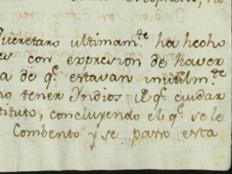 Queretaro ultimam.te ha hecho
es con expresion de haver
a de q.e estavan inutilm.te
no tener Yndios de q.e cuidar
tituto, concluyendo el q.e se le
Combento y se paso esta